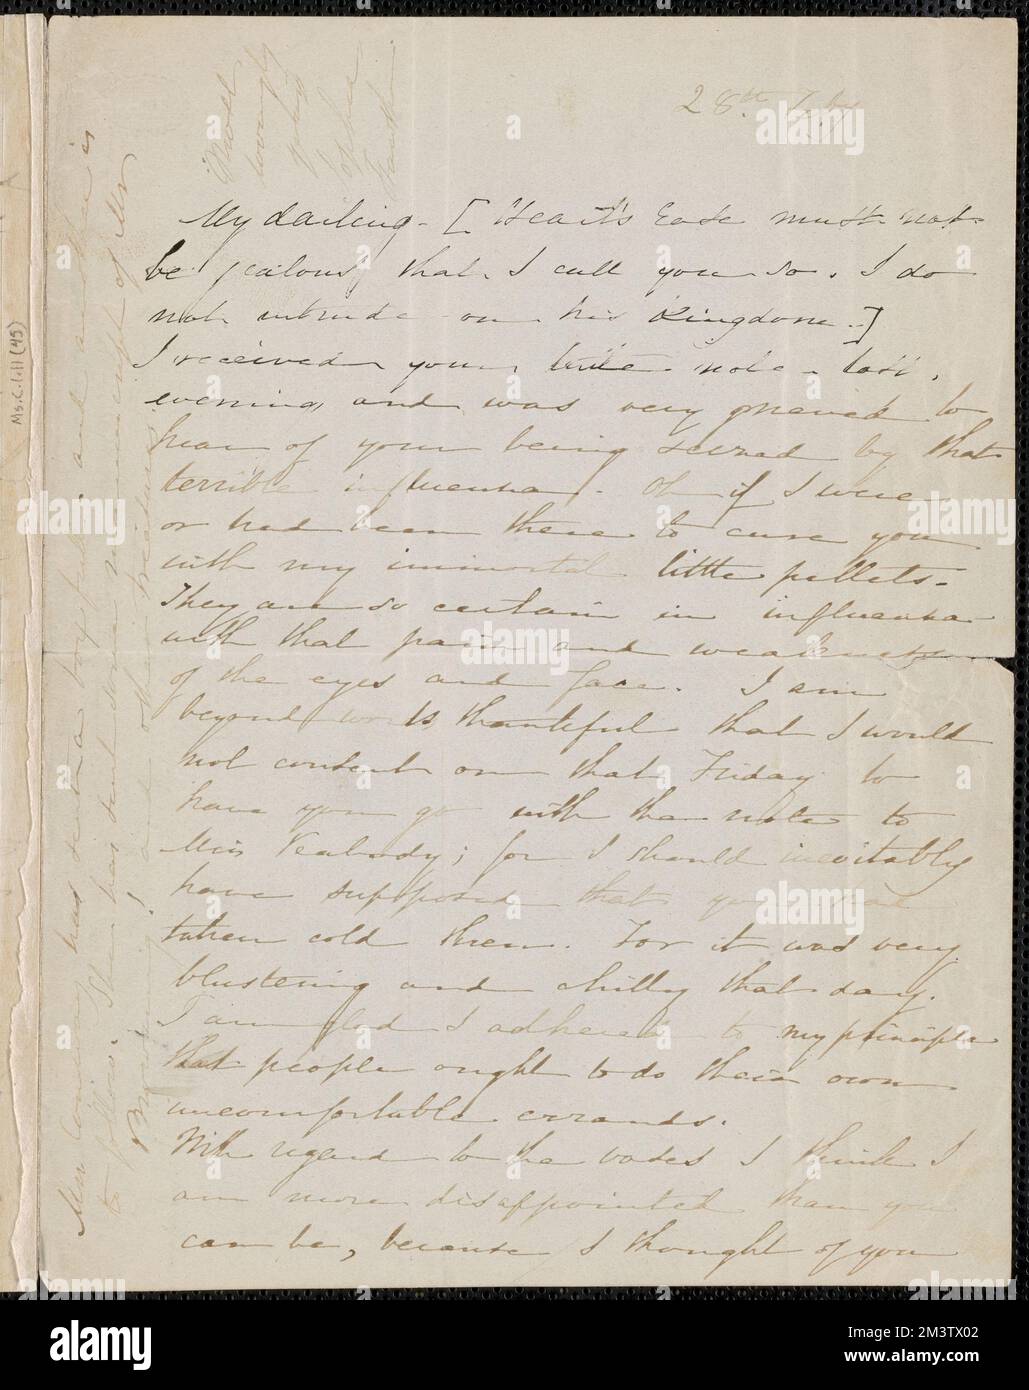 28th
My darling - [Heart's Ease must not
be jealous, that I call you so. I do
not intrude on his Kingdom.]
I received your note last
evening, and was very grieved to
hear of your being seized by that
terrible influenza. Oh if I were
or had been there to cure you
with my immortal little pellets.
They are so certain in influenza
with that pain and weakness
of the eyes and face. I am
beyond words thankful that I would
not consent on that Friday to
have you go with the note to
Miss Peabody; for I should inevitably
have supposed that you had
taken cold then. For it was very
blustering and chilly that day.
I am glad I adhered to my principle
that people ought to do their own
uncomfortable errands.
With regard to the vases I think I
am more disappointed than you
can be, because I thought of you
Most
lovingly
yours
Sophia
Hawthorne
Mrs. has sent a boy and another is
to follow. She has sent some manuscript of Mr
Browning! and other treasures
Ms.C.1.11(45)
alamy
Image ID: 2M3TX02
www.alamy.com